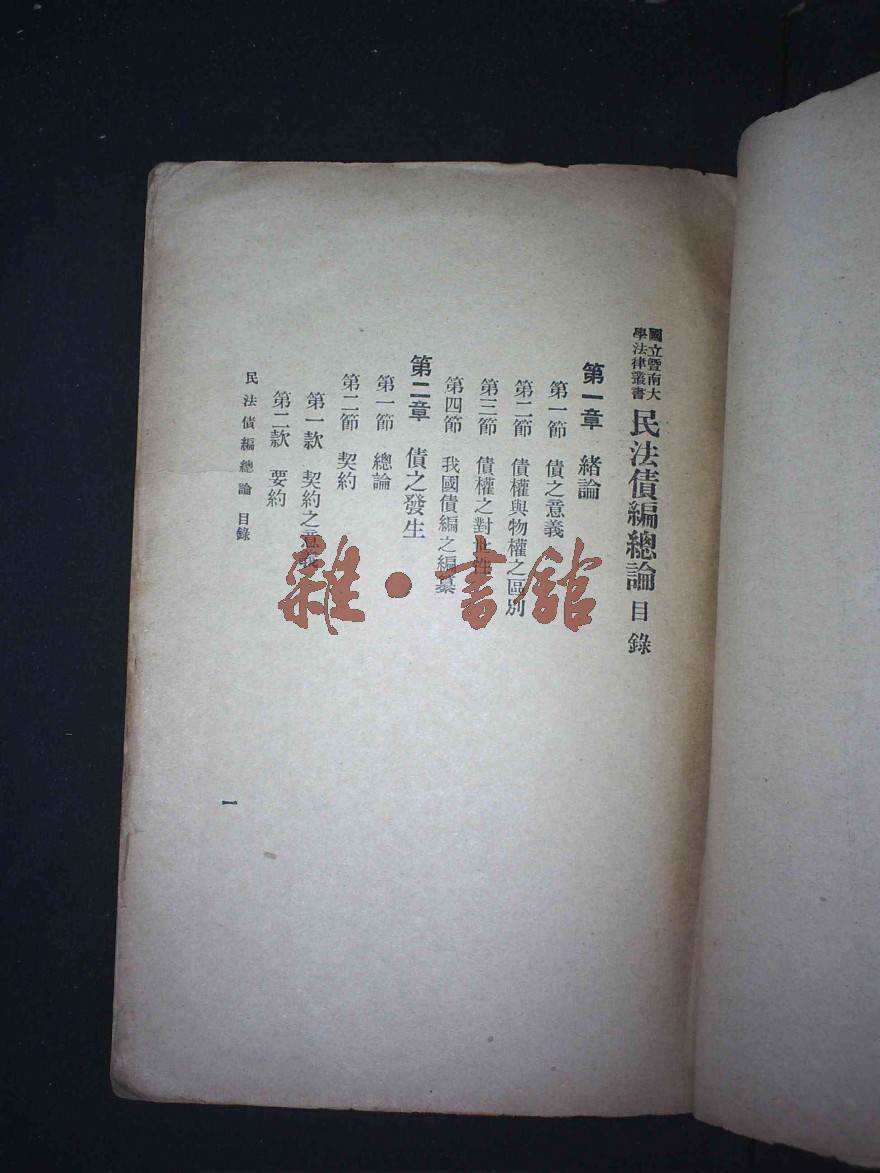 國立暨南大學法律叢書 民法債編總論 目錄
第一章 緒論
第一節 債之意義
第二節 債權與物權之區別
第三節 債權之對世性
第四節 我國債編之編纂
第二章 債之發生
第一節 總論
第二節 契約
第一款 契約之意義
第二款 要約
民法債編總論 目錄
一
雜·書館